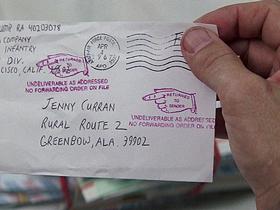 RA 40203078
COMPANY
INFANTRY
DIV.
CISCO, CALIF.
APR
6
APO
RETURNED
TO
SENDER
UNDELIVERABLE AS ADDRESSED
NO FORWARDING ORDER ON FILE
JENNY CURRAN
RURAL ROUTE 2
GREENBOW, ALA. 39902
RETURNED
TO
SENDER
UNDELIVERABLE AS ADDRESSED
NO FORWARDING ORDER ON FILE